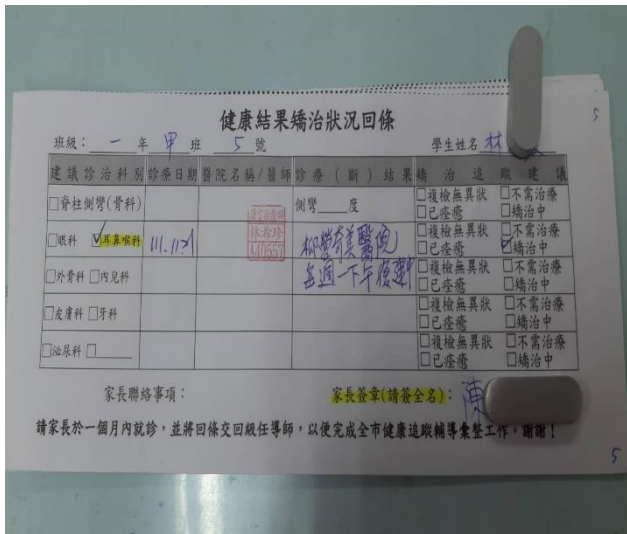 健康結果矯治狀況回條
班級：一年甲班 5 號 學生姓名 林
建議診治科別 診療日期 醫院名稱/醫師 診療(斷)結果 矯治追蹤建議
□脊柱側彎(骨科) 側彎____度 □複檢無異狀 □不需治療
□已痊癒 □矯治中
□眼科 ☑耳鼻喉科 111.11.21 語言治療師 林希珍 柳營奇美醫院 □複檢無異狀 □不需治療
每週一下午復健中 □已痊癒 ☑矯治中
□外骨科 □內兒科 □複檢無異狀 □不需治療
□已痊癒 □矯治中
□皮膚科 □牙科 □複檢無異狀 □不需治療
□已痊癒 □矯治中
□泌尿科 □____ □複檢無異狀 □不需治療
□已痊癒 □矯治中
家長聯絡事項： 家長簽章(請簽全名)：陳
請家長於一個月內就診，並將回條交回級任導師，以便完成全市健康追蹤輔導彙整工作。謝謝！
5
5